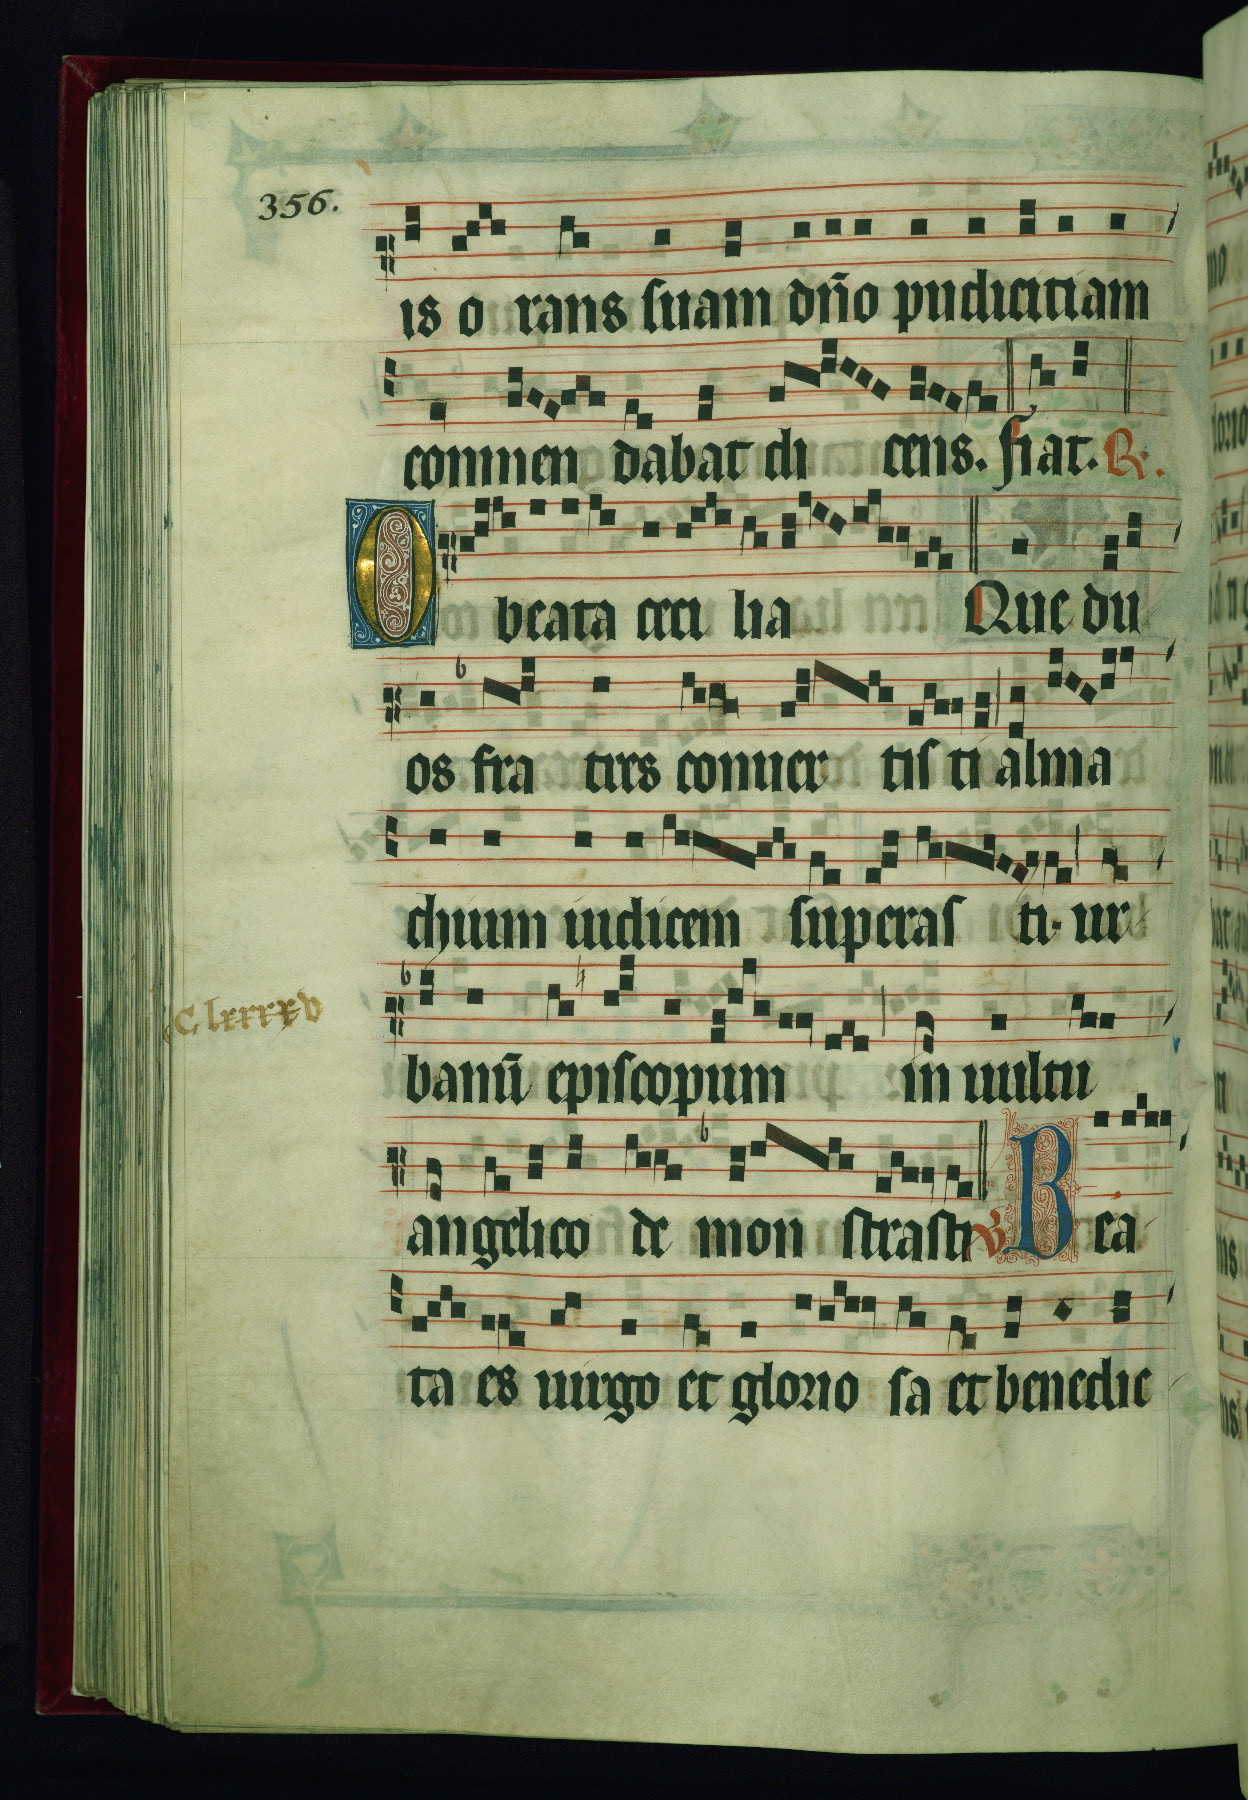 356.
is o rans suam dño pudicitiam
commen dabat di cens. fiat. R.
O beata ceci lia Que du
os fra tres conuer tis ti alma
chium iudicem superas ti. ur
C lxxxxv
banū episcopum in uultu
angelico de mon strasti V Bea
ta es uirgo et glorio sa et benedic